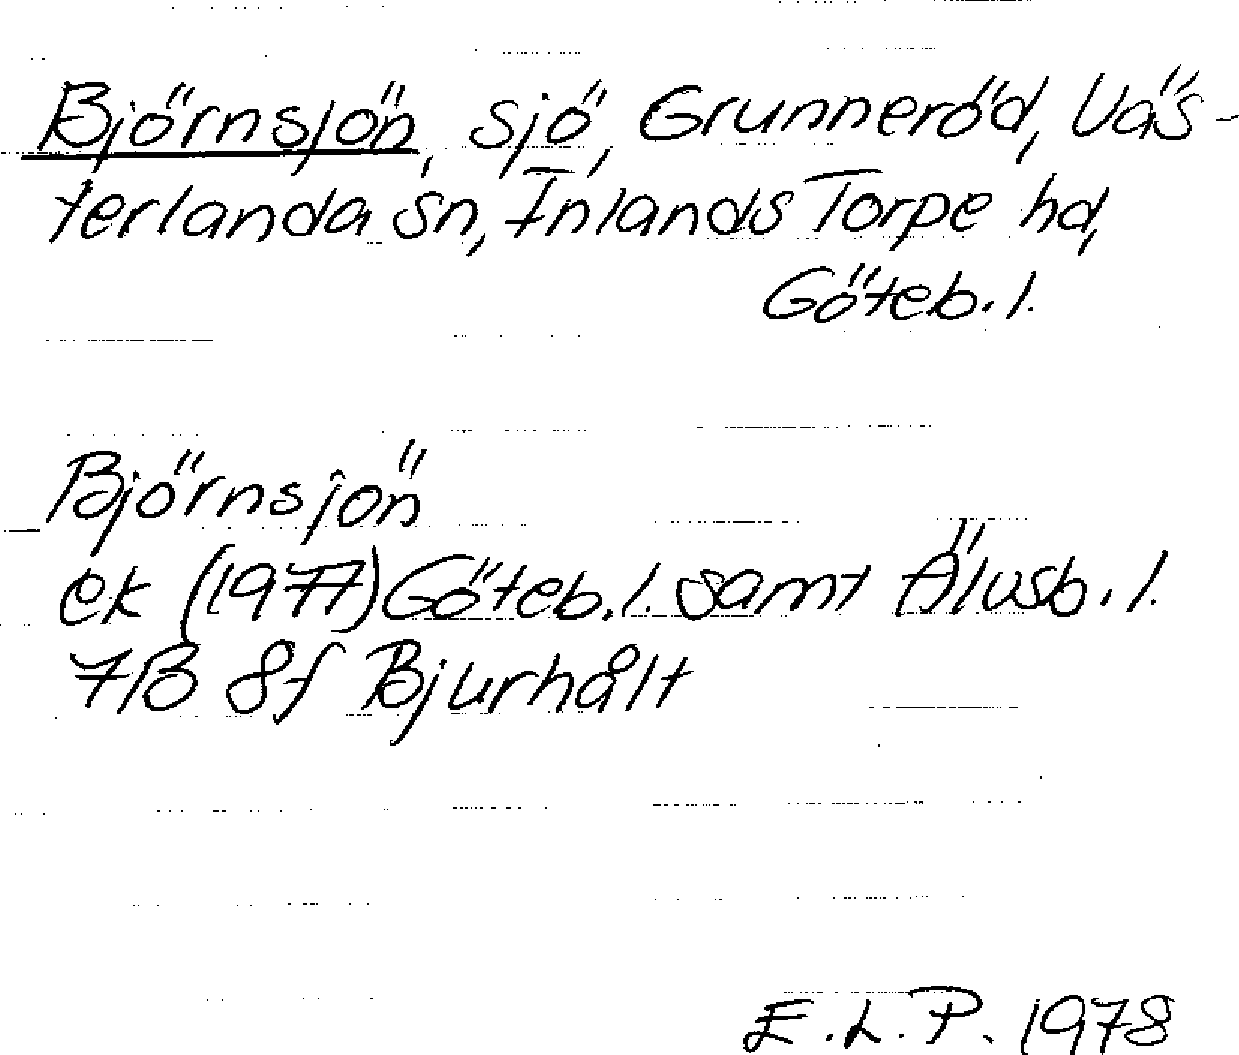 Björnsjön, sjö, Grunneröd, Väs-
terlanda sn, Inlands Torpe hd,
Göteb. l.
Björnsjön
ek (1977) Göteb. l. samt Älvsb. l.
7B 8f Bjurhålt
E.L.P. 1978